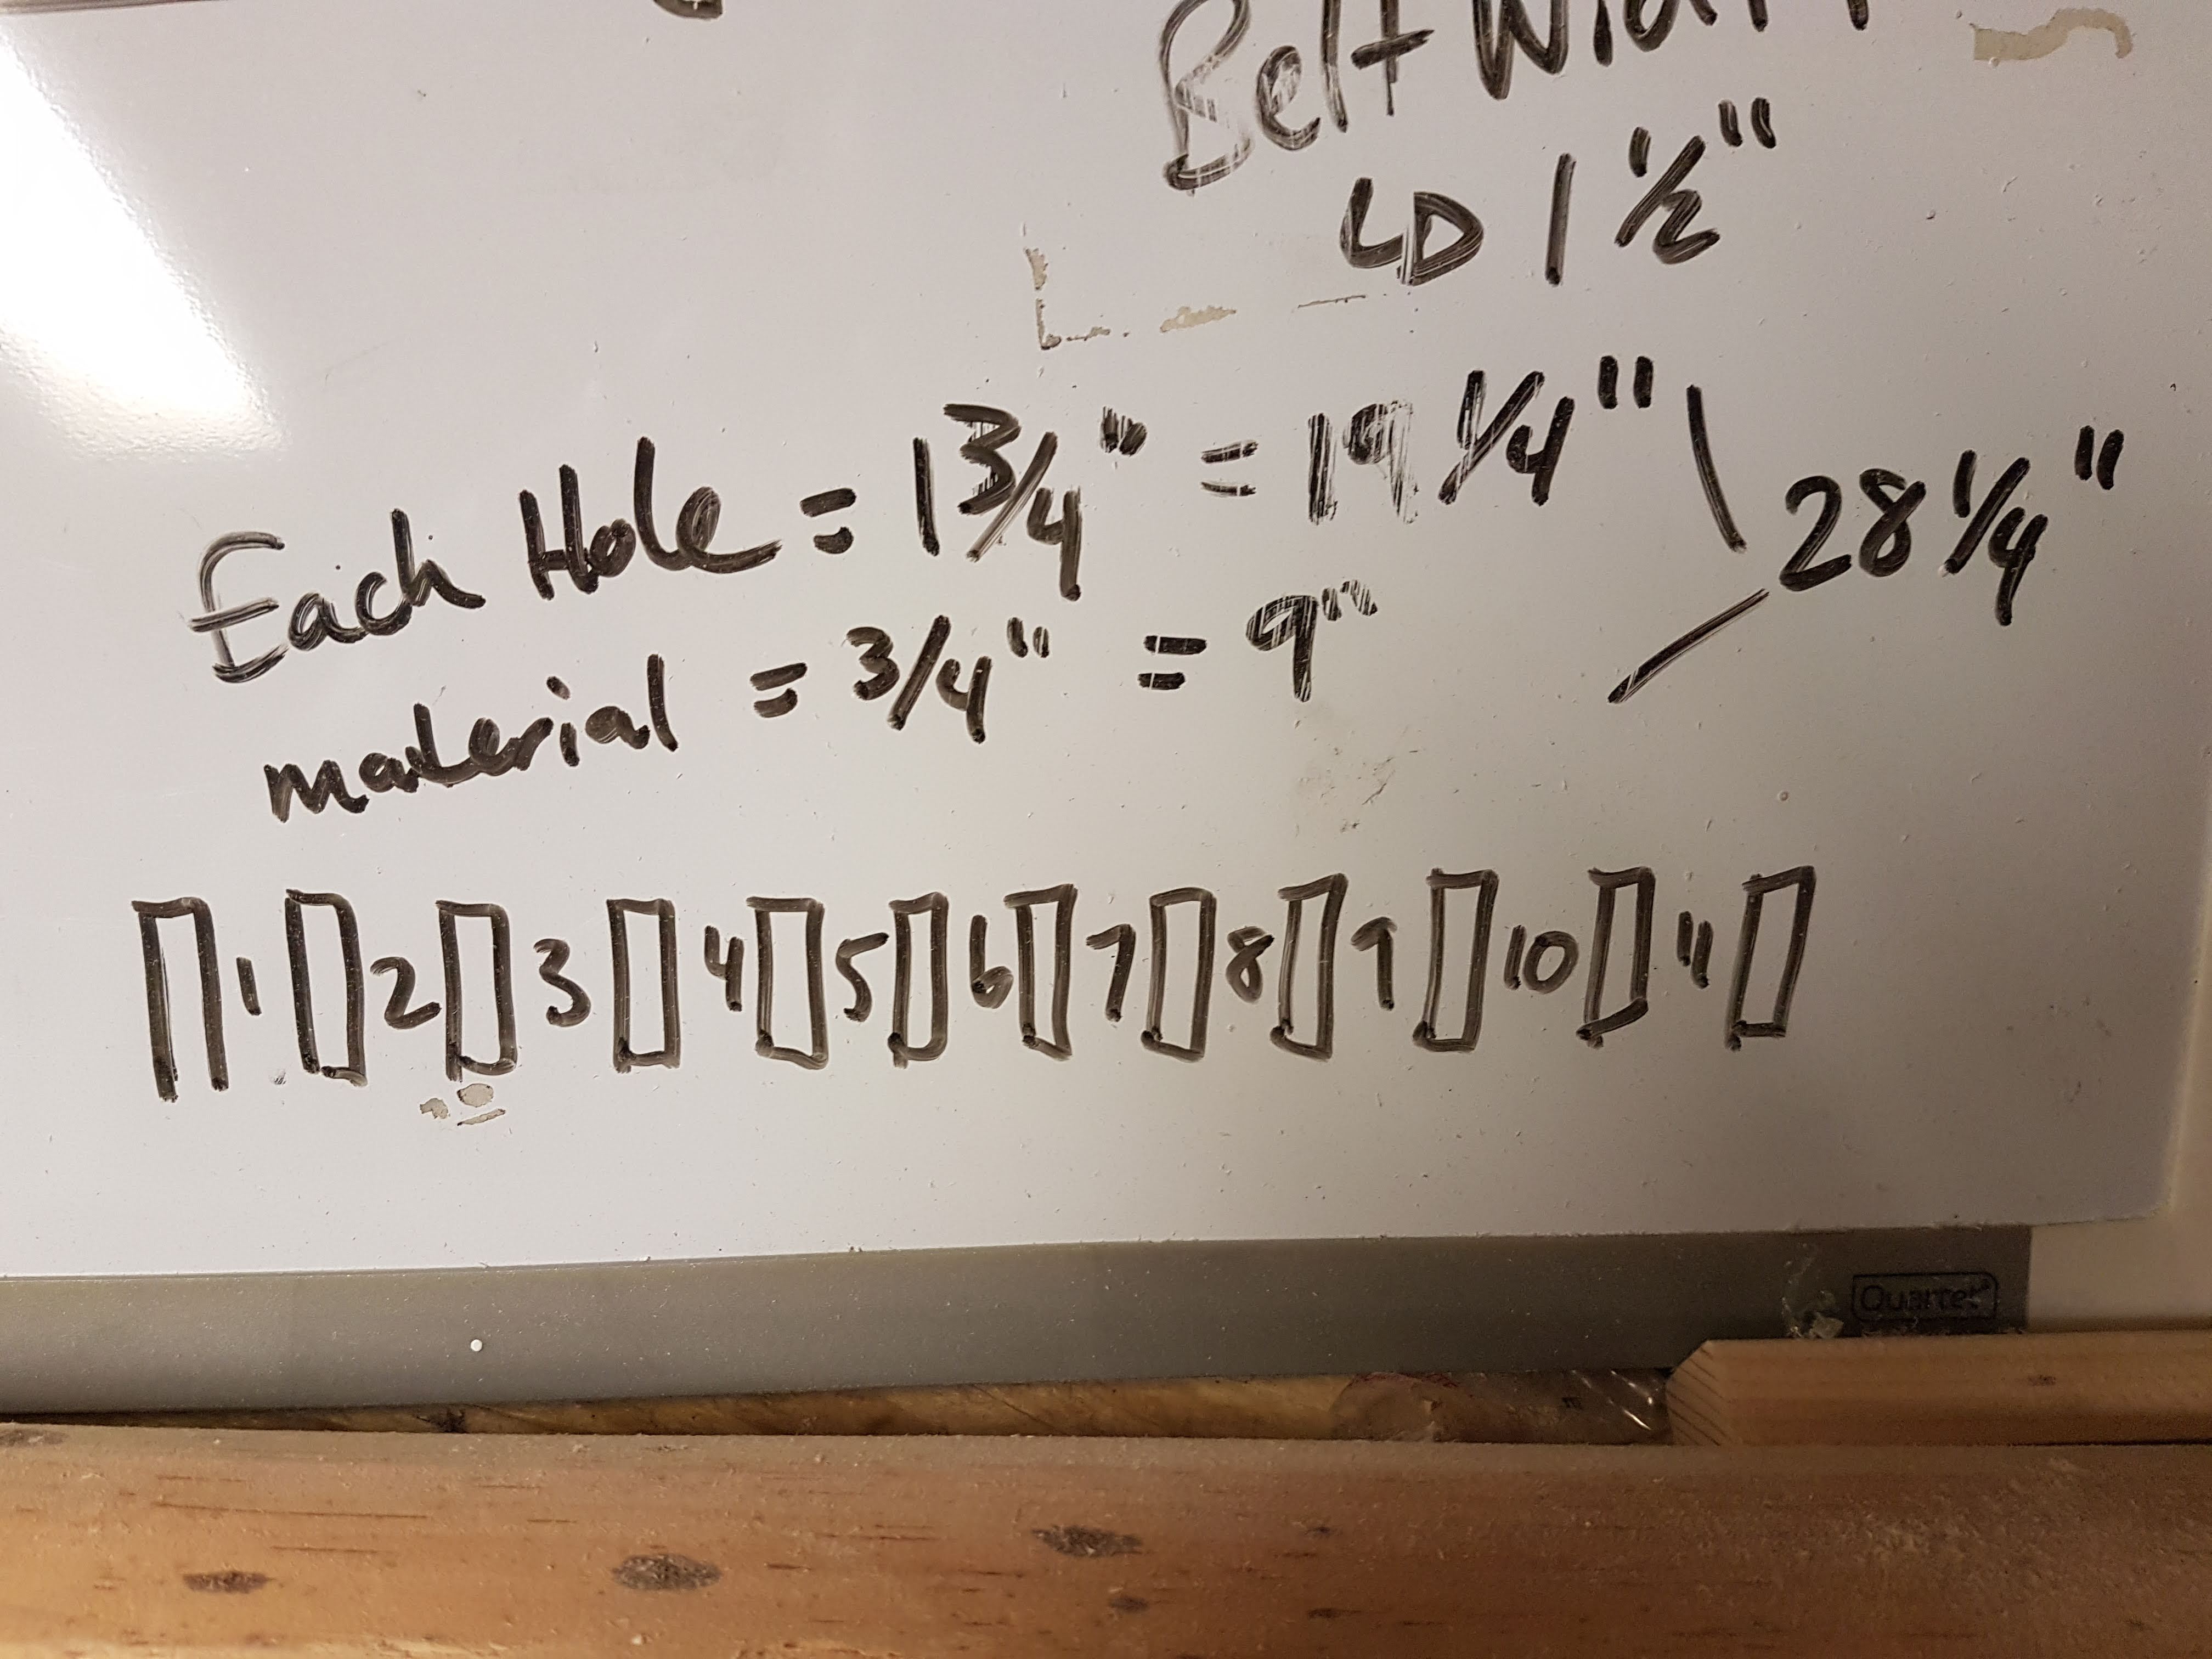 Belt Width
LD 1 1/2"
Each Hole = 1 3/4" = 19 1/4"
28 1/4"
material = 3/4" = 9"
1 2 3 4 5 6 7 8 9 10 11
Quartet